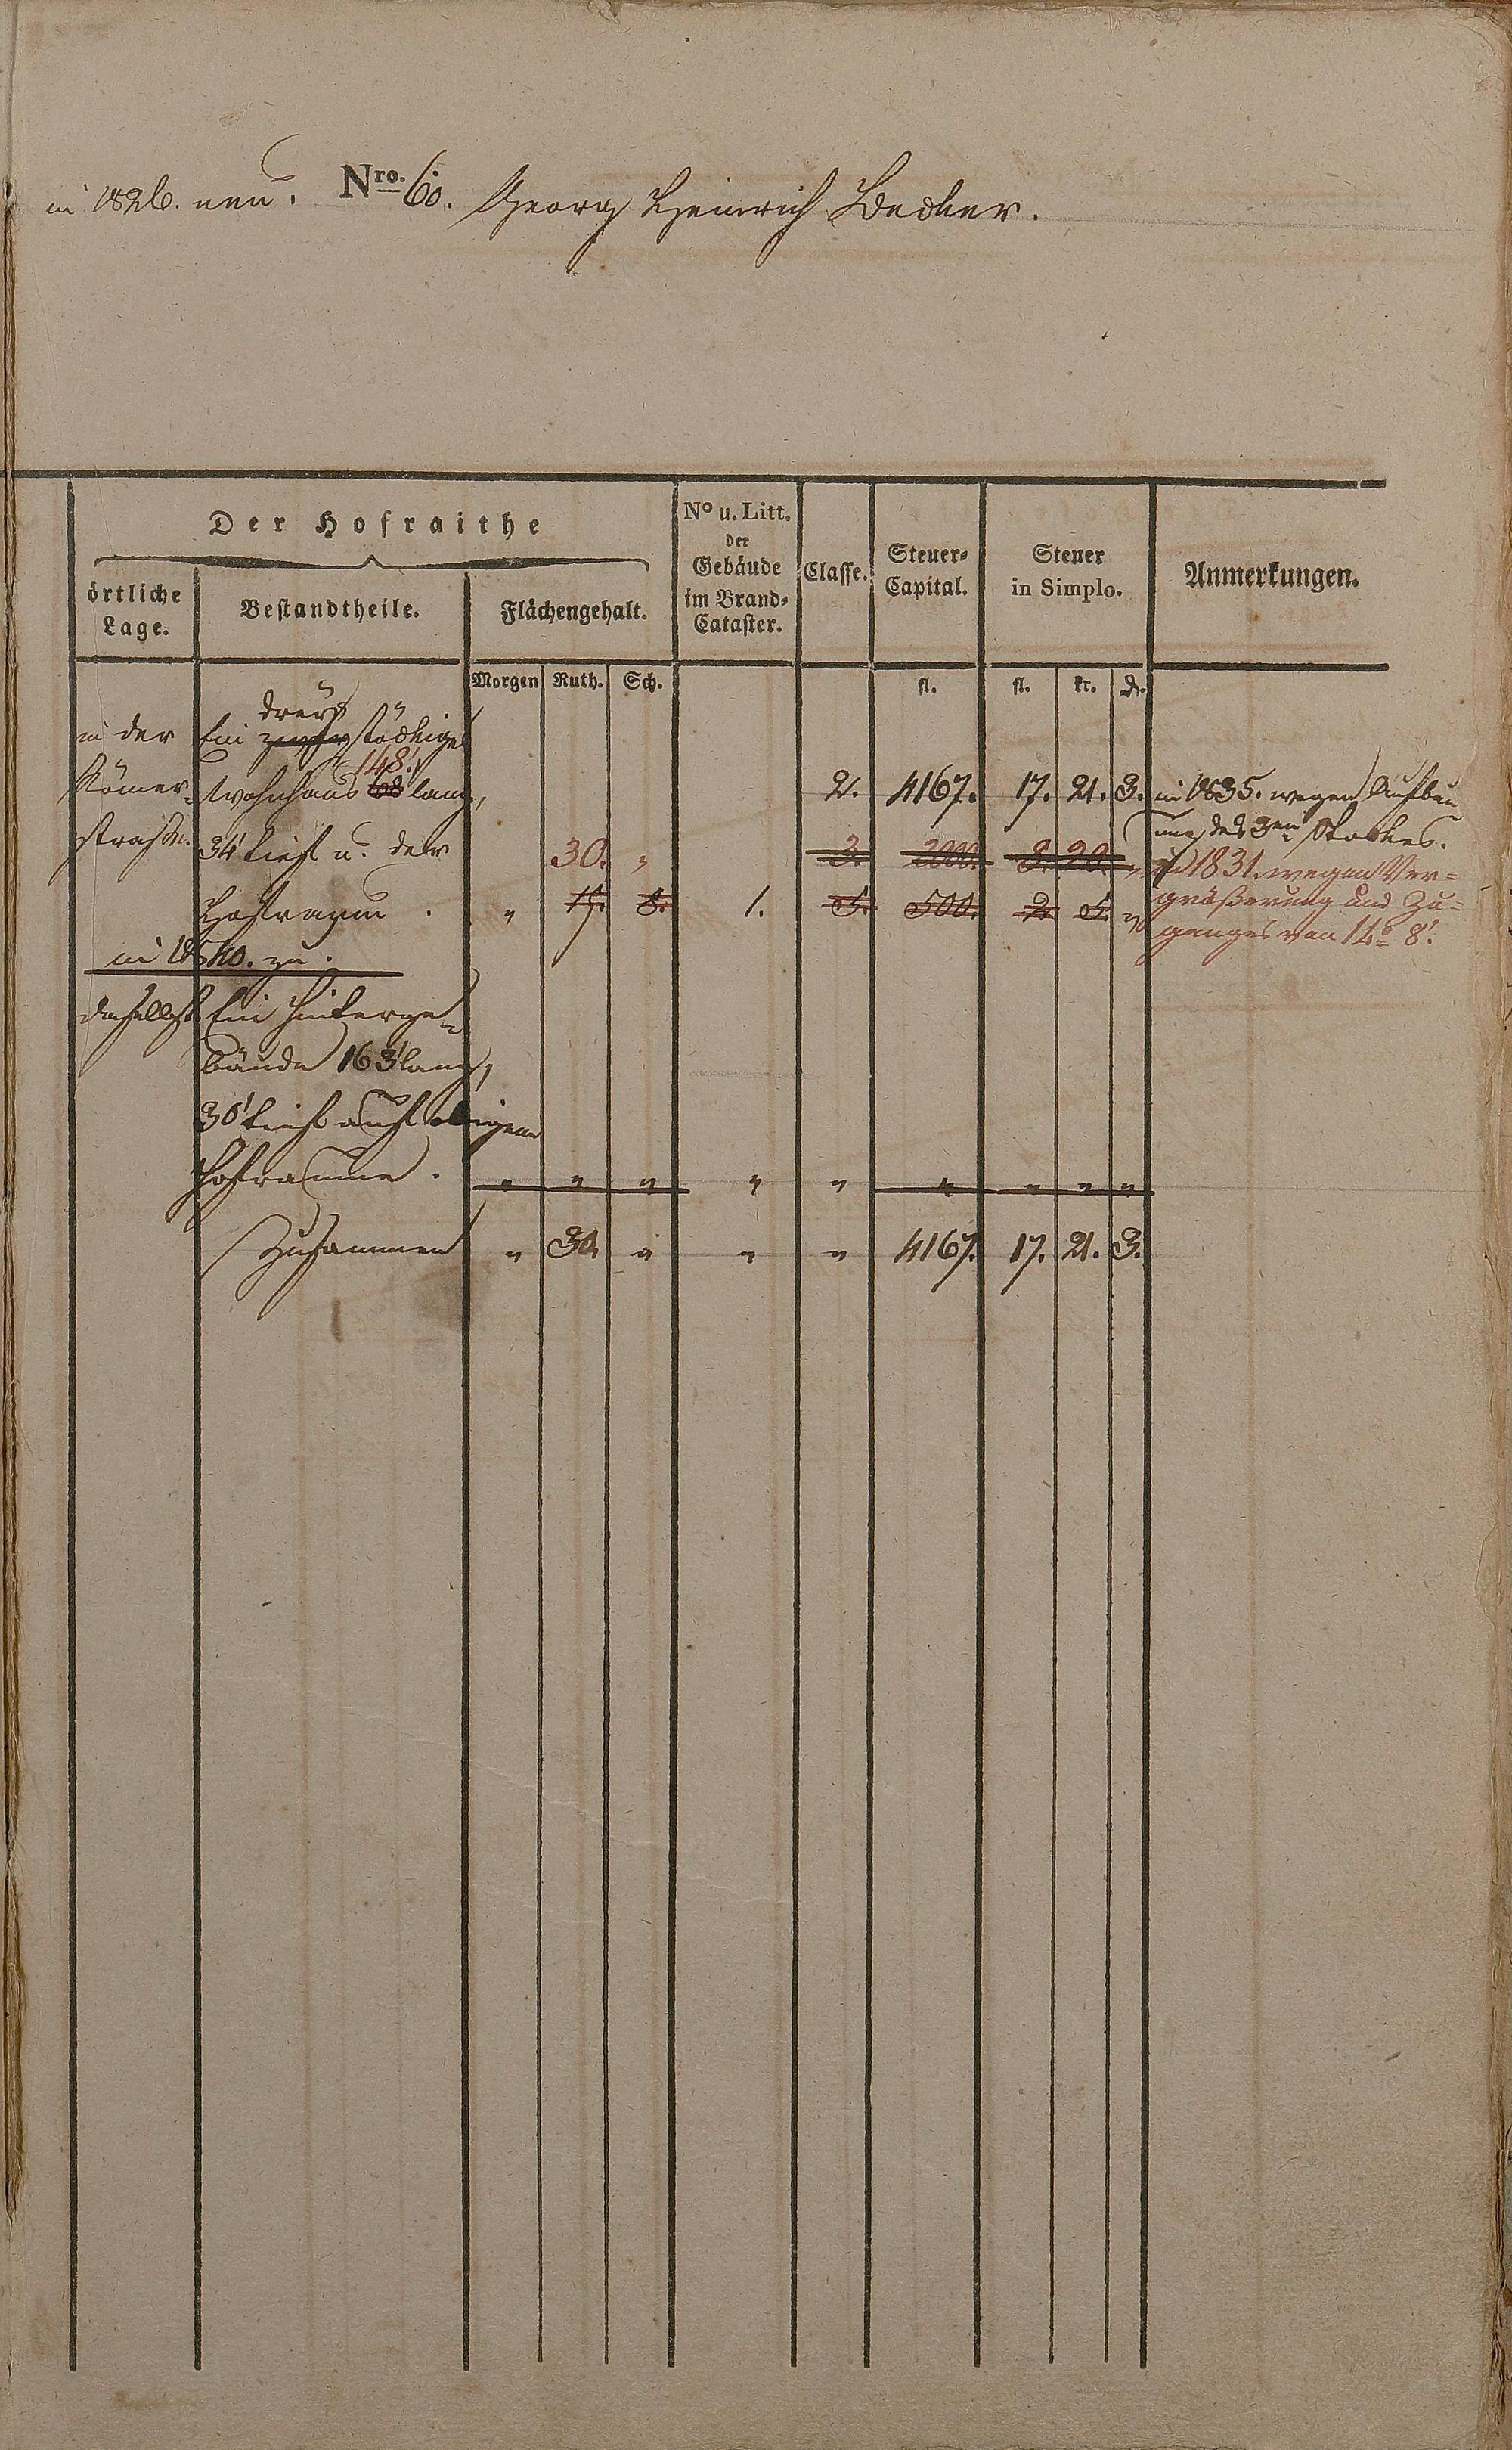 in 1826. neu. Nro. 60. Georg Heinrich Becker.
Der Hofraithe
örtliche Lage.
Bestandtheile.
Flächengehalt.
No u. Litt. der Gebäude im Brand-Cataster.
Classe.
Steuer-Capital.
Steuer in Simplo.
Anmerkungen.
Morgen Ruth. Sch. fl. fl. kr. d.
drey
in der Ein zweystöckiges
148'
Römer- Wohnhaus 68' lang, 2. 4167. 17. 21. 3. in 1835. wegen Aufbau
ung des 3en Stockes.
straße. 34' tief u. der 30. " 3. 2000. 8. 20. " in 1831. wegen Ver-
Hofraum . " 15. 8. 1. 5. 500. 2. 5. " größerung und Zu-
ganges von 14° 8'.
in 1840. zu.
daselbst Ein Hinterge-
bäude 163' lang,
30' tief auf obigem
Hofraume. " " " " " " " " "
Zusammen " 30. " " " 4167. 17. 21. 3.